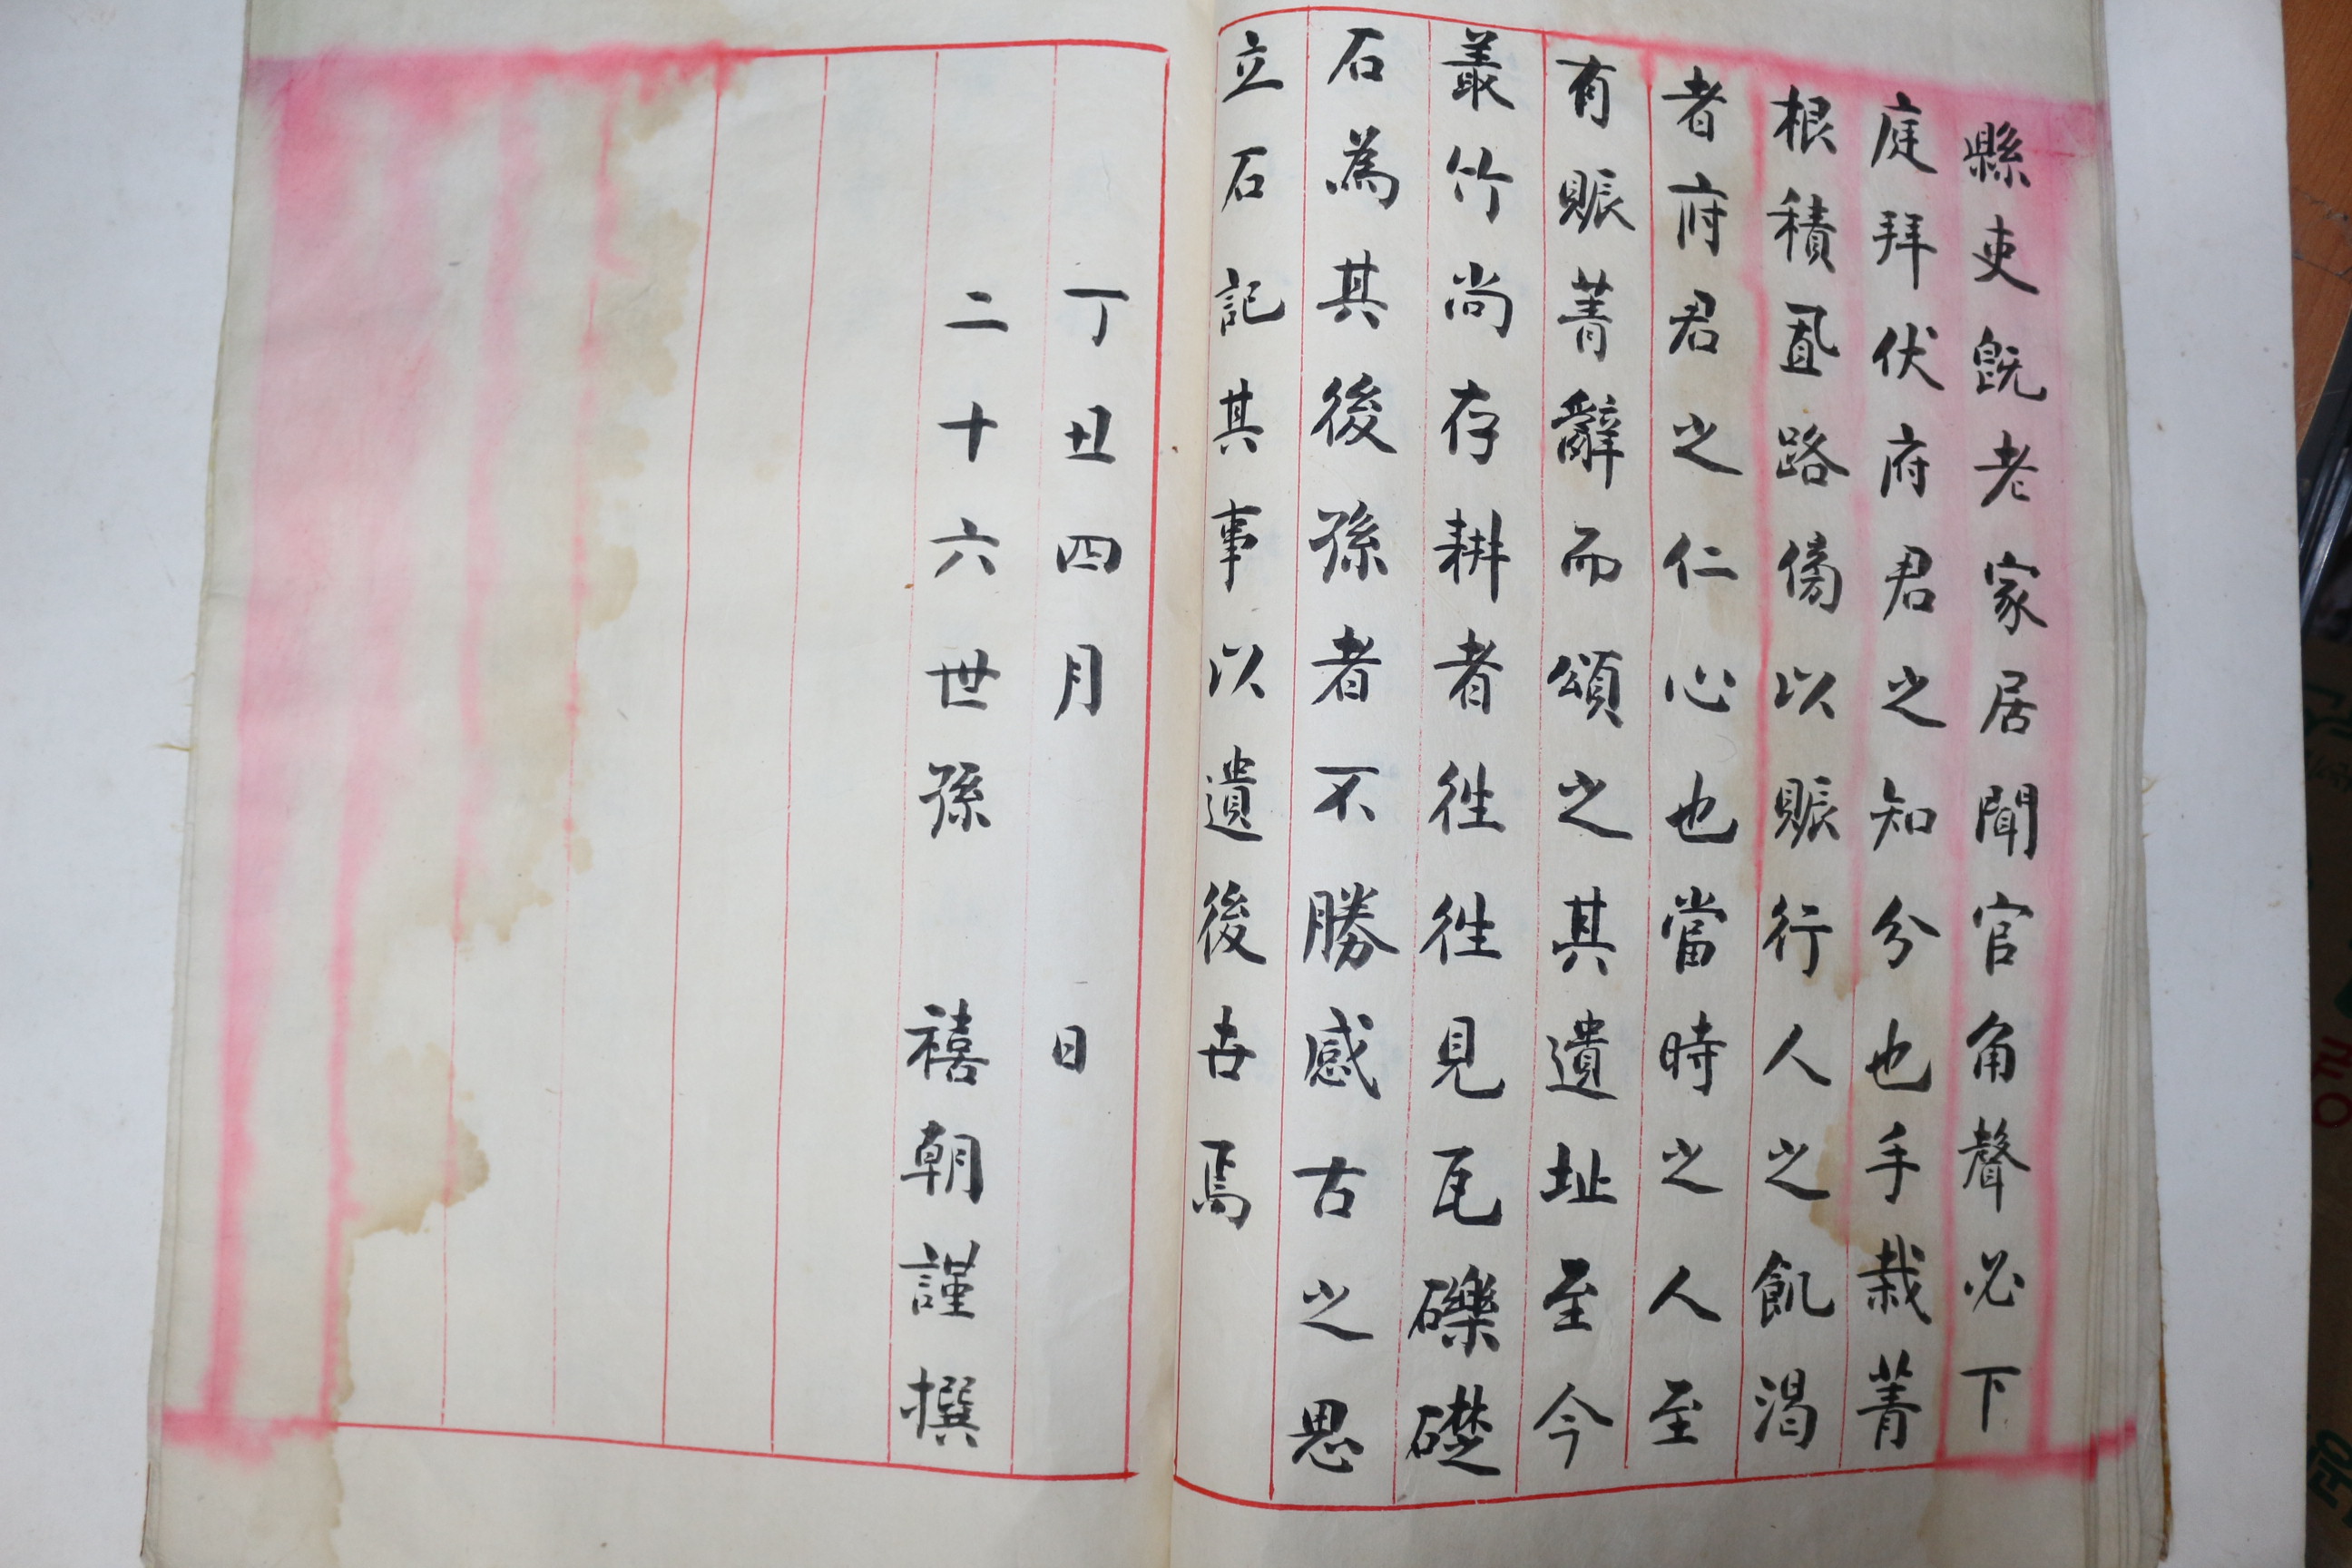 縣吏旣老家居聞官角聲必下
庭拜伏府君之知分也手栽菁
根積置路傍以賑行人之飢渴
者府君之仁心也當時之人至
有賑菁辭而頌之其遺址至今
叢竹尚存耕者徃徃見瓦礫礎
石為其後孫者不勝感古之思
立石記其事以遺後世焉
丁丑四月 日
二十六世孫 禧朝謹撰